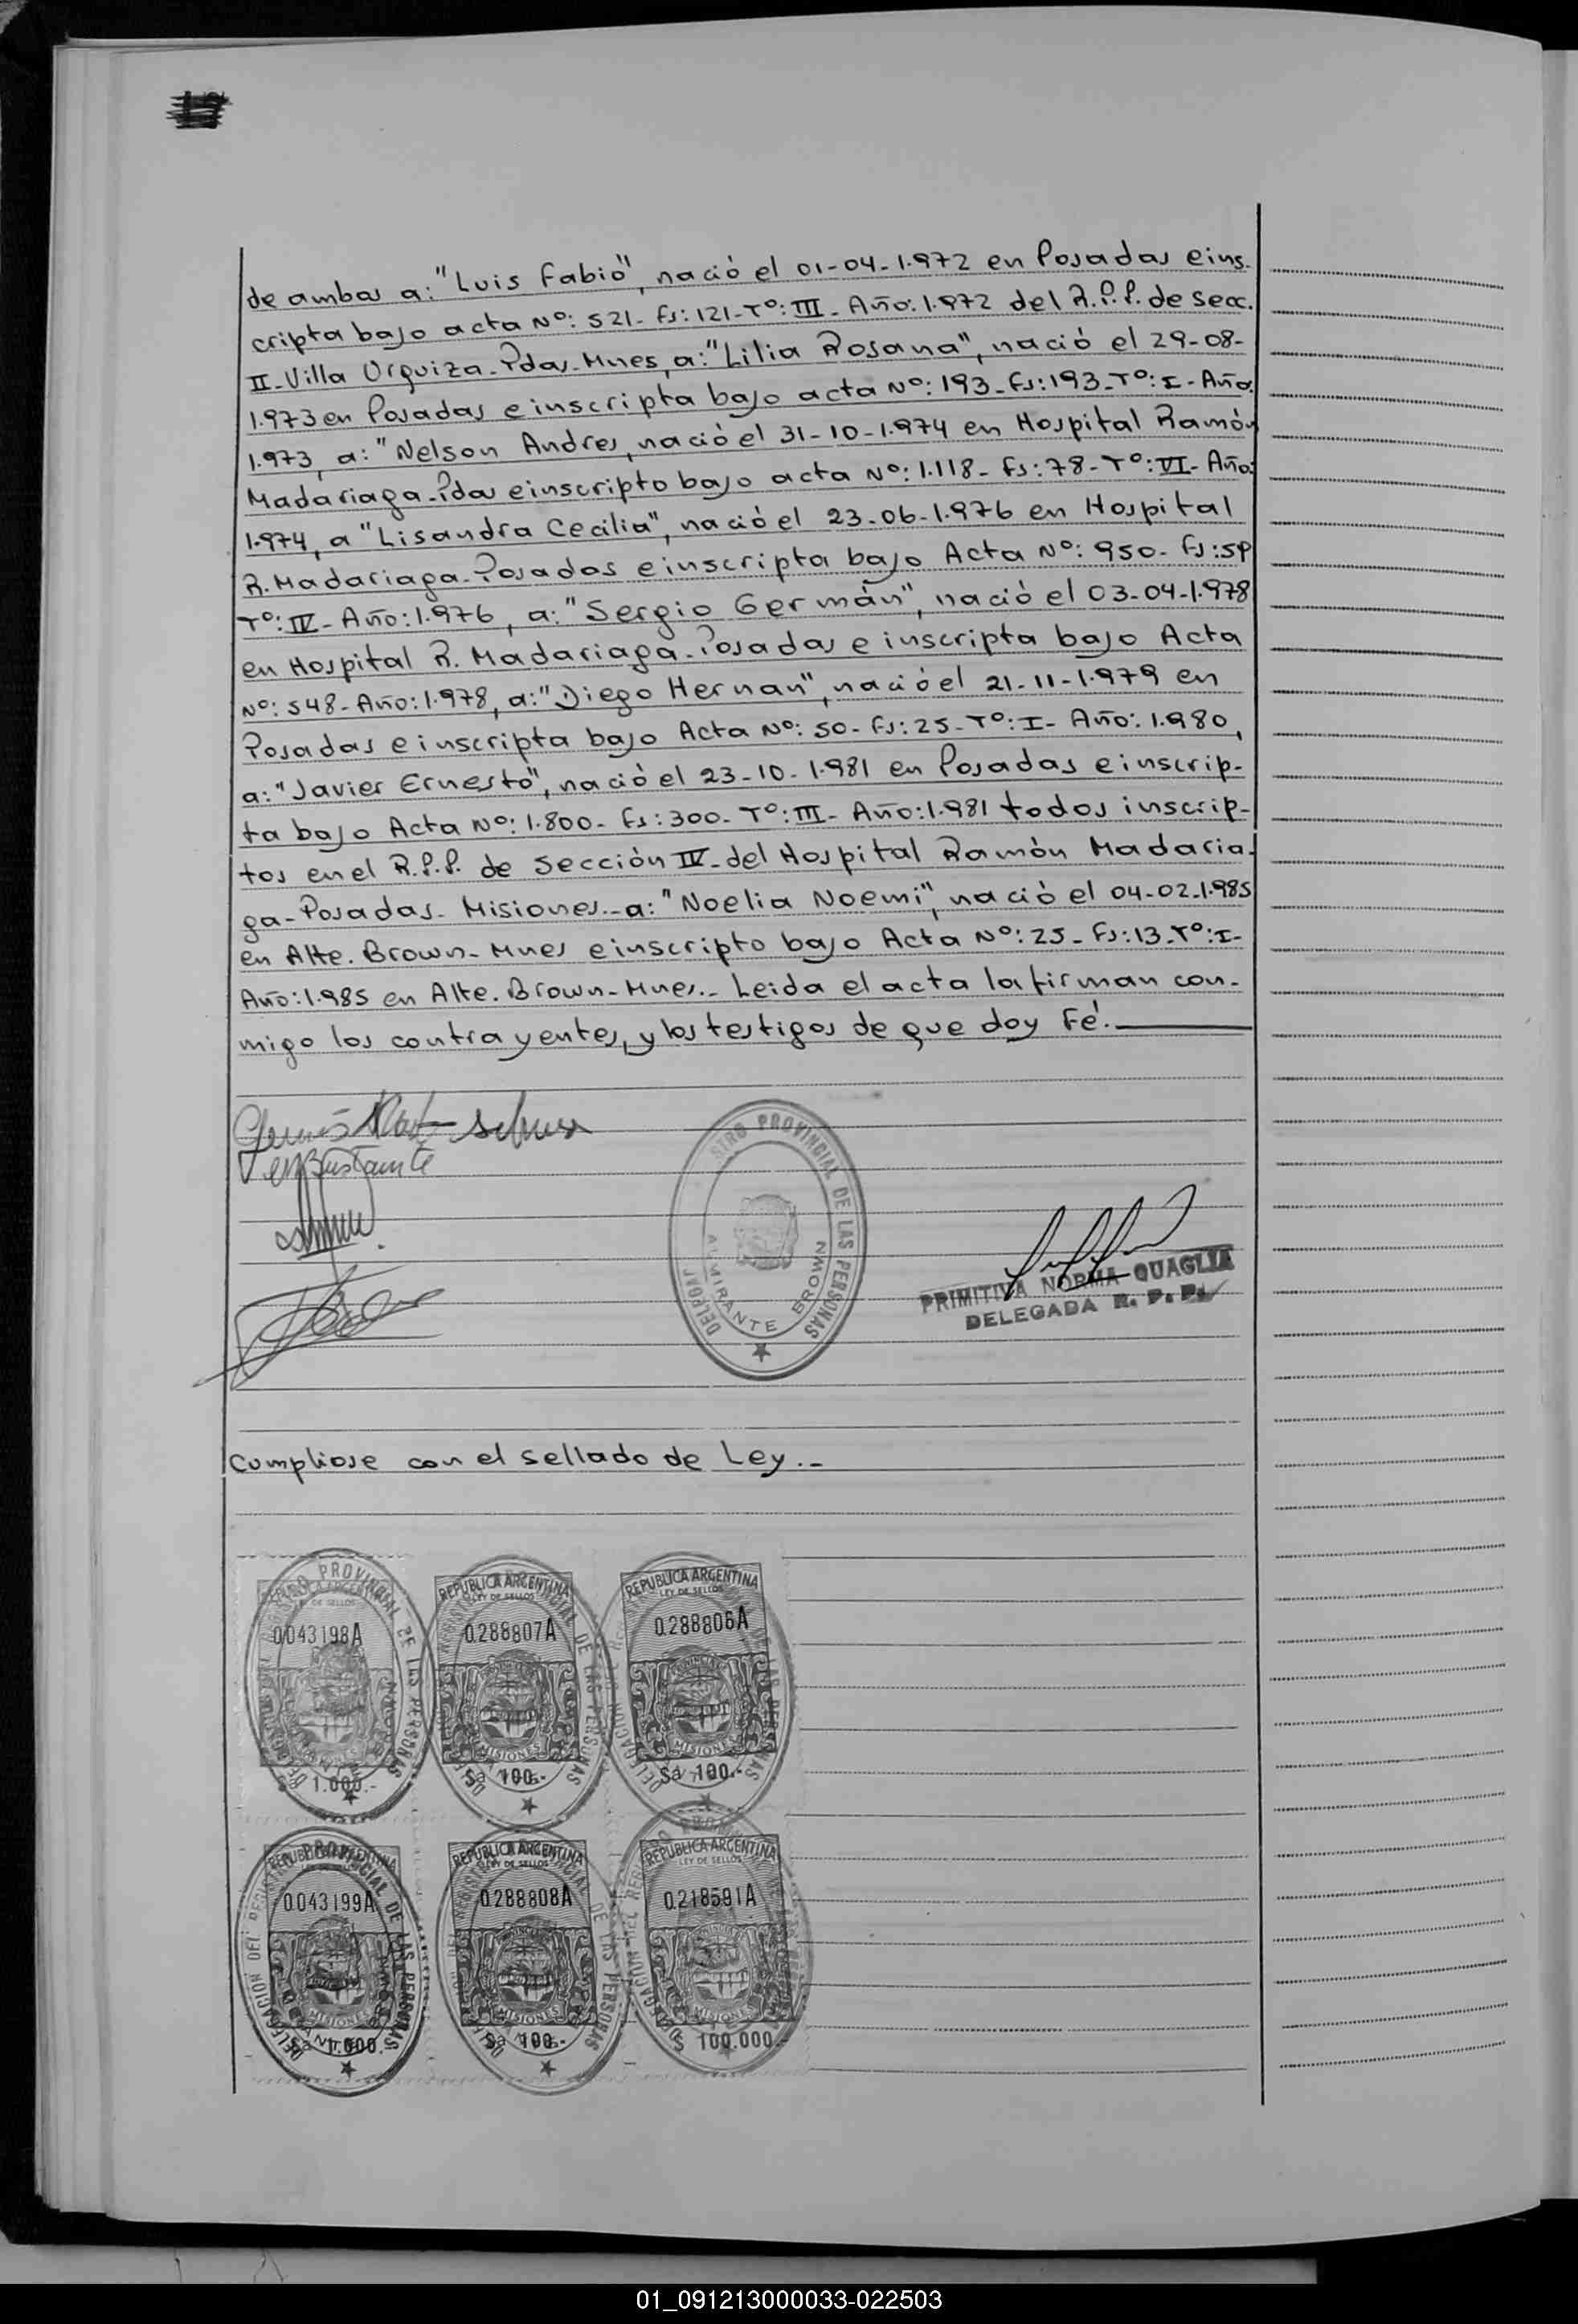 de ambos a: "Luis Fabio", nació el 01-04-1.972 en Posadas e ins-
cripta bajo acta Nº: 521- Fs: 121-Tº: III- Año: 1.972 del R.P.P. de Secc.
II-Villa Urquiza-Pdas-Mnes, a: "Lilia Rosana", nació el 29-08-
1.973 en Posadas e inscripta bajo acta Nº: 193-Fs: 193-Tº: I- Año:
1.973, a: "Nelson Andres, nació el 31-10-1.974 en Hospital Ramón
Madariaga-Pdas e inscripto bajo acta Nº: 1.118- Fs: 78- Tº: VI- Año:
1.974, a "Lisandra Cecilia", nació el 23-06-1.976 en Hospital
R. Madariaga-Posadas e inscripta bajo Acta Nº: 950- Fs:
Tº: IV- Año: 1.976, a: "Sergio Germán", nació el 03-04-1.978
en Hospital R. Madariaga-Posadas e inscripta bajo Acta
Nº: 548- Año: 1.978, a: "Diego Hernan", nació el 21-11-1.979 en
Posadas e inscripta bajo Acta Nº: 50- Fs: 25- Tº: I- Año: 1.980,
a: "Javier Ernesto", nació el 23-10-1.981 en Posadas e inscrip-
ta bajo Acta Nº: 1.800- Fs: 300- Tº: III- Año: 1.981 todos inscrip-
tos en el R.P.P. de Sección IV-del Hospital Ramón Madaria-
ga-Posadas-Misiones.-a: "Noelia Noemi", nació el 04-02-1.985
en Alte. Brown-Mnes e inscripto bajo Acta Nº: 25- Fs: 13-Tº: I-
Año: 1.985 en Alte. Brown-Mnes.- Leida el acta la firman con-
migo los contrayentes, y los testigos de que doy Fé.
Bustamante
PROVINCIAL DE LAS PERSONAS
ALMIRANTE BROWN
PRIMITIVA NORMA QUAGLIA
DELEGADA R. P. P.
Cumpliose con el sellado de Ley.-
REPUBLICA ARGENTINA REPUBLICA ARGENTINA REPUBLICA ARGENTINA
LEY DE SELLOS LEY DE SELLOS LEY DE SELLOS
0.043198A 0.288807A 0.288806A
MISIONES MISIONES
$a 1.000.- $a 100.- $a 100.-
REPUBLICA ARGENTINA REPUBLICA ARGENTINA REPUBLICA ARGENTINA
LEY DE SELLOS LEY DE SELLOS
0.043199A 0.288808A 0.218591A
MISIONES MISIONES MISIONES
$a 1.000.- $a 100.- $ 100.000.-
01_091213000033-022503